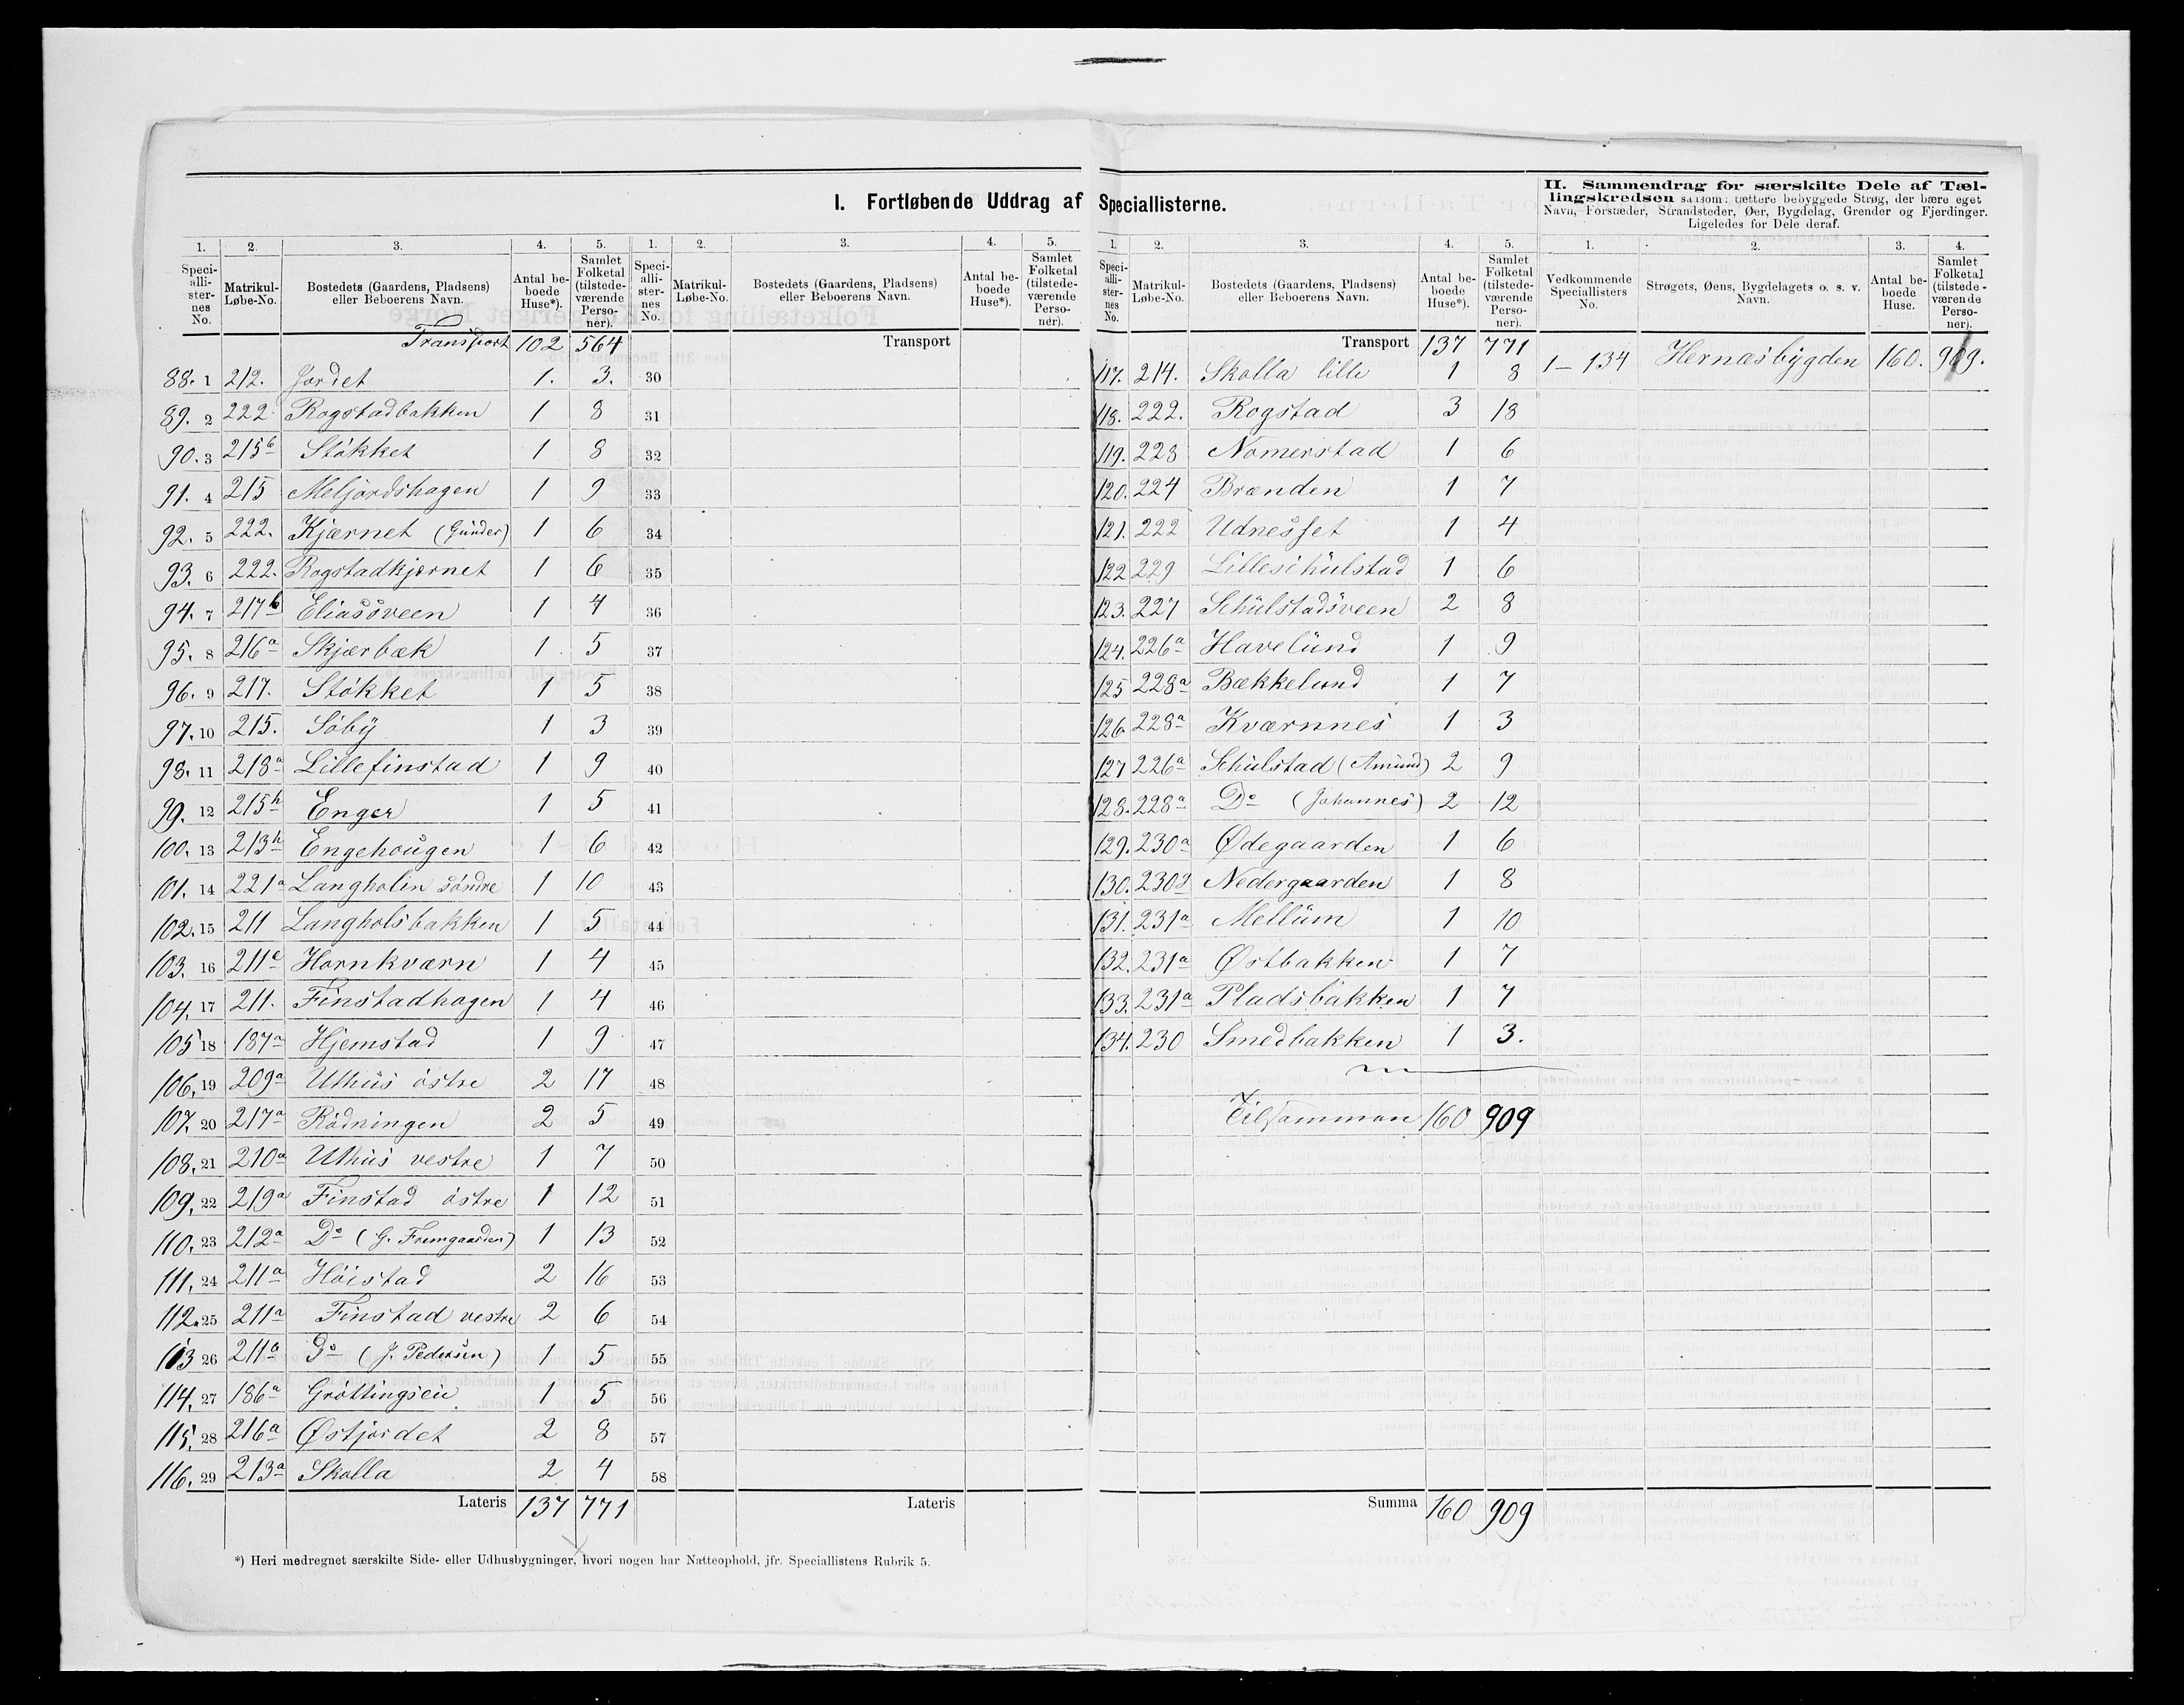 I. Fortløbende Uddrag af Speciallisterne.
II. Sammendrag for særskilte Dele af Tæl-
lingskredsen saasom: tættere bebyggede Strøg, der bære eget
Navn, Forstæder, Strandsteder, Øer, Bygdelag, Grender og Fjerdinger.
Ligeledes for Dele deraf.
1. 2. 3. 4. 5. 1. 2. 3. 4. 5.
Speciallisternes No. Matrikul-Løbe-No. Bostedets (Gaardens, Pladsens) eller Beboerens Navn. Antal beboede Huse*). Samlet Folketal (tilstedeværende Personer).
Speciallisternes No. Matrikul-Løbe-No. Bostedets (Gaardens, Pladsens) eller Beboerens Navn. Antal beboede Huse*). Samlet Folketal (tilstedeværende Personer).
Transport 102 564 Transport
88. 1 212. Jordet 1. 3. 30
89. 2 222. Rogstadbakken 1 8 31
90. 3 215b Stökket 1 8 32
91. 4 215 Meljordshagen 1 9 33
92. 5 222. Kjærnet (Gunder) 1 6 34
93. 6 222. Rogstadkjærnet 1 6 35
94. 7 217b Eliassveen 1 4 36
95. 8 216a Skjærbæk 1 5 37
96. 9 217. Stökket 1 5 38
97. 10 215. Söby 1 3 39
98. 11 218a Lillefinstad 1 9 40
99. 12 215h Enger 1 5 41
100. 13 213h Engehougen 1 6 42
101. 14 221a Langholin söndre 1 10 43
102. 15 211 Langholsbakken 1 5 44
103. 16 211c Hornkværn 1 4 45
104. 17 211. Finstadhagen 1 4 46
105 18 187a Hjemstad 1 9 47
106. 19 209a Uthus östre 2 17 48
107. 20 217a Rödningen 2 5 49
108. 21 210a Uthus vestre 1 7 50
109. 22 219a Finstad östre 1 12 51
110. 23 212a Do (G. Fremgaarden) 1 13 52
111. 24 211a Höistad 2 16 53
112. 25 211a Finstad vestre 2 6 54
113 26 211a Do (J. Pedersen) 1 5 55
114. 27 186a Gröttingseie 1 5 56
115. 28 216a Østjordet 2 8 57
116. 29 213a Skolla 2 4 58
Lateris 137 771 Lateris
*) Heri medregnet særskilte Side- eller Udhusbygninger, hvori nogen har Natteophold, jfr. Speciallistens Rubrik 5.
1. 2. 3. 4. 5. 1. 2. 3. 4.
Speciallisternes No. Matrikul-Løbe-No. Bostedets (Gaardens, Pladsens) eller Beboerens Navn. Antal beboede Huse*). Samlet Folketal (tilstedeværende Personer).
Vedkommende Speciallisters No. Strøgets, Øens, Bygdelagets o. s. v. Navn. Antal beboede Huse. Samlet Folketal (tilstedeværende Personer).
Transport 137 771
117. 214. Skolla lille 1 8 1-134 Hernæsbygden 160. 909.
118. 222. Rogstad 3 18
119. 223 Nomerstad 1 6
120. 224 Brænden 1 7
121. 222 Udnesset 1 4
122 229 Lilleschulstad 1 6
123. 227 Schulstadsveen 2 8
124. 226a Havelund 1 9
125 228a Bækkelund 1 7
126 228a Kværnnes 1 3
127 226a Schulstad (Amund) 2 9
128. 228a Do (Johannes) 2 12
129. 230a Ødegaarden 1 6
130. 230d Nedergaarden 1 8
131. 231a Mellum 1 10
132. 231a Østbakken 1 7
133. 231a Pladsbakken 1 7
134. 230 Smedbakken 1 3.
Tilsamman 160 909
Summa 160 909